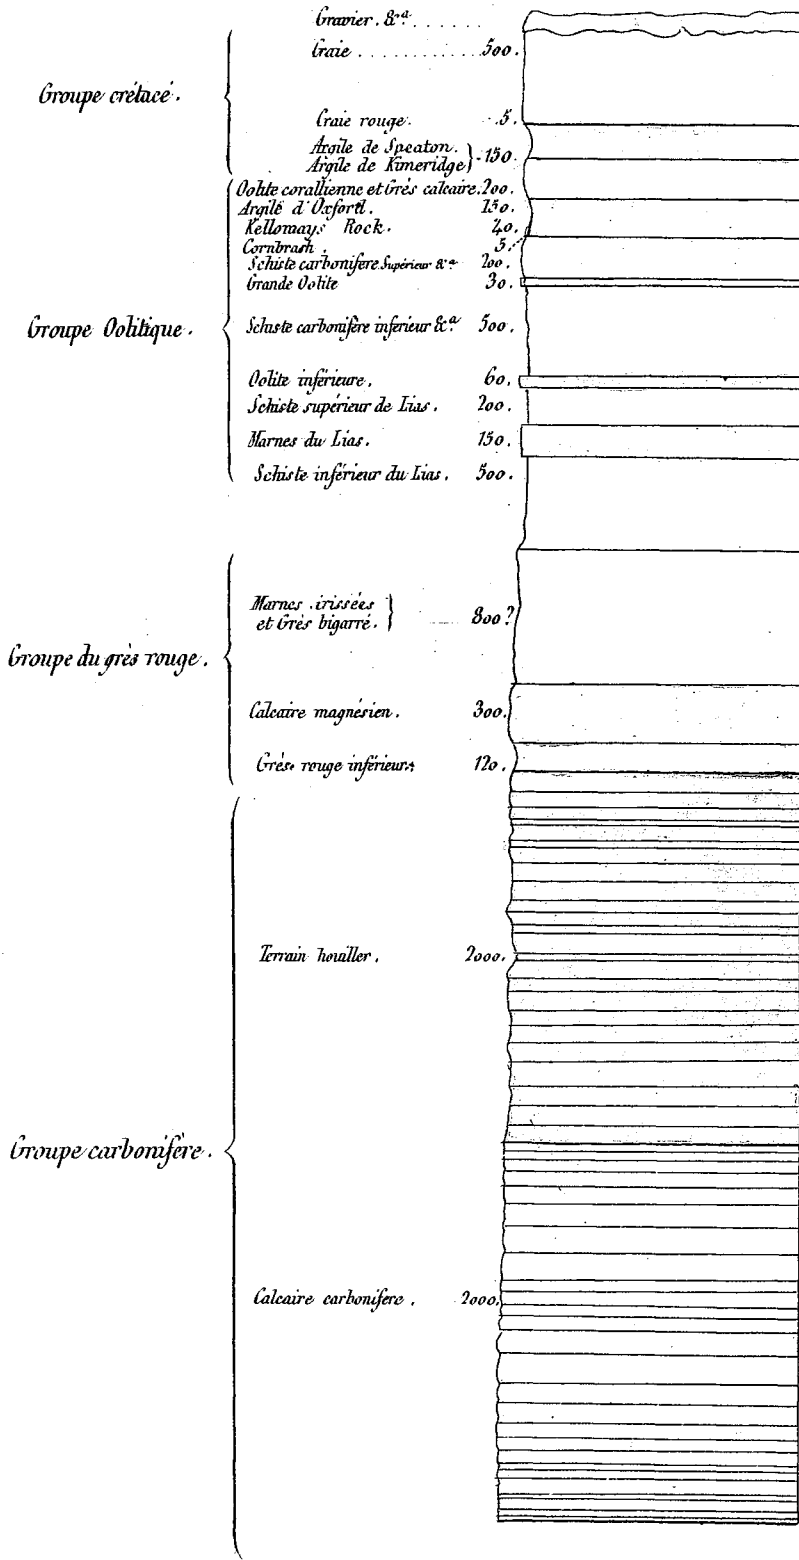 Gravier. &ra. . . . . . .
Groupe crétacé.
Craie . . . . . . . . . . . . . 500.
Craie rouge. 5.
Argile de Speaton.
Argile de Kimeridge } 150.
Groupe Oolitique.
Oolite corallienne et Grès calcaire. 200.
Argile d'Oxford. 150.
Kelloways Rock. 40.
Cornbrash. 5.
Schiste carbonifere Supérieur &a. 200.
Grande Oolite 30.
Schiste carbonifère inférieur &a. 500.
Oolite inférieure. 60.
Schiste supérieur de Lias. 200.
Marnes du Lias. 150.
Schiste inférieur du Lias. 500.
Groupe du grès rouge.
Marnes irissées
et Grès bigarré. } 800?
Calcaire magnésien. 300.
Grés rouge inférieur. 120.
Groupe carbonifère.
Terrain houiller. 2000.
Calcaire carbonifere. 2000.